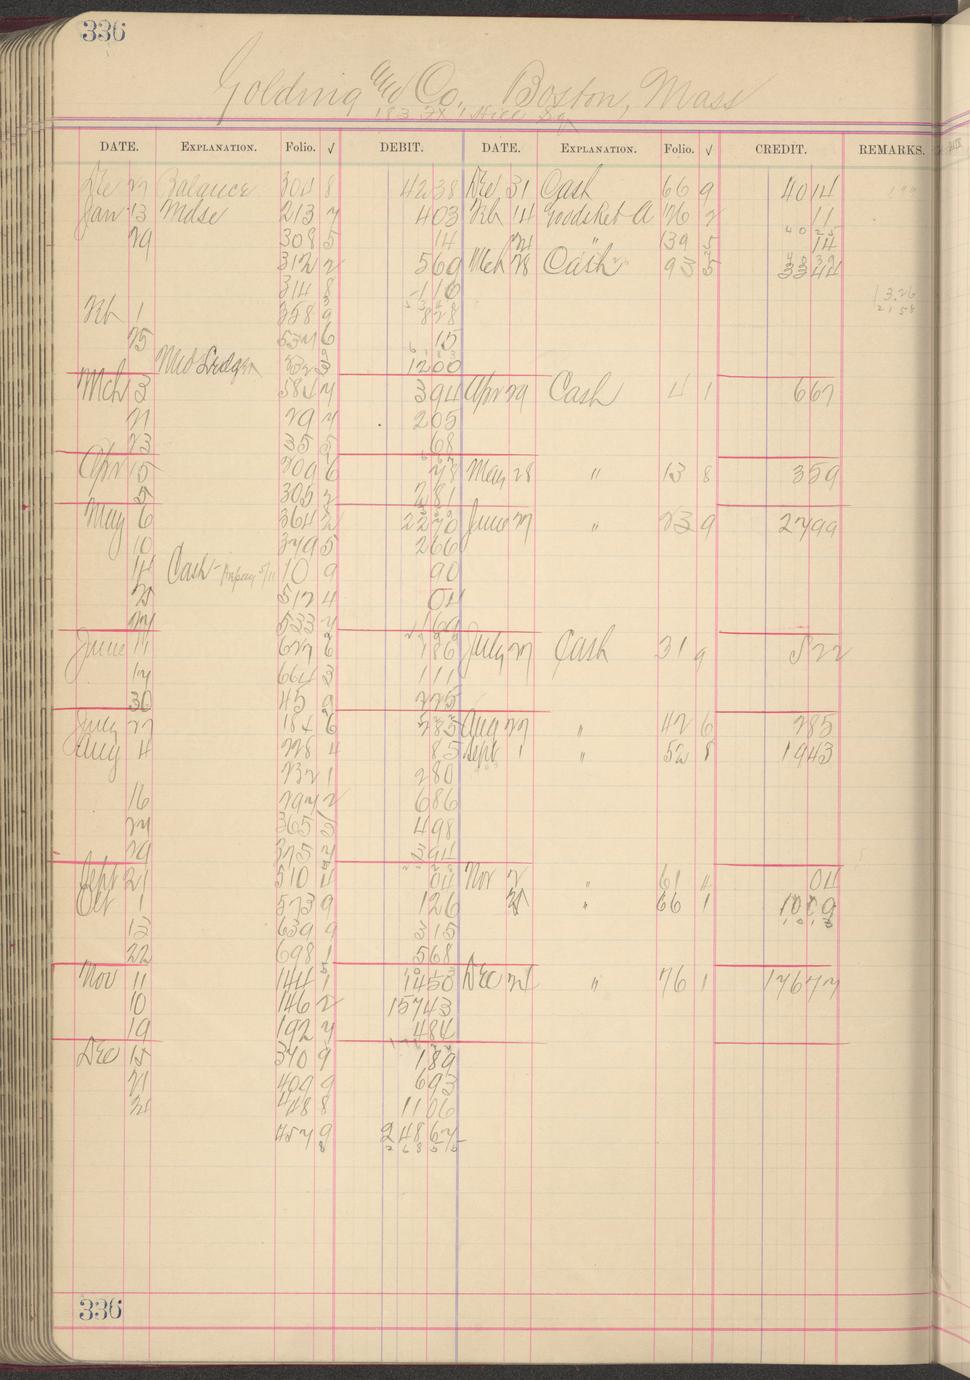 336
Golding and Co, Boston, Mass
183 Ft Hill Sq
DATE. EXPLANATION. Folio. √ DEBIT. DATE. EXPLANATION. Folio. √ CREDIT. REMARKS.
Dec Balance 304 8 4238 Dec 31 Cash 66 9 4014
Jan 13 Mdse 213 7 403 Feb 14 76 2 11
29 308 5 14 " 139 5 14
312 2 569 Mch 28 Cash 93 5 3344
314 8 116
Feb 1 358 9 828
25 6 15
Med Ledger 3 1200
Mch 3 584 7 394 Apr 29 Cash 4 1 667
21 29 7 205
23 35 5 68
Apr 15 209 6 78 May 28 " 13 8 359
5 305 2 281
May 6 364 2 2270 June 27 " 23 9 2799
10 349 5 266
14 Cash- 10 9 90
25 512 4 04
27 533 7 169
June 11 627 6 186 July 27 Cash 31 9 522
17 664 3 111
30 45 9 225
July 27 184 6 285 Aug 27 " 42 6 285
Aug 4 228 4 85 Sept 1 " 52 8 1943
232 1 280
16 297 2 686
27 365 5 498
29 375 7 394
Sept 21 510 4 04 Nov 2 " 61 " 04
Oct 1 573 9 126 " 66 1 1009
13 639 9 315
22 698 1 568
Nov 11 144 1 1450 Dec " 76 1 17677
10 146 2 15743
19 192 7 484
Dec 15 340 9 189
21 409 9 693
31 448 8 1106
457 9 24867
336